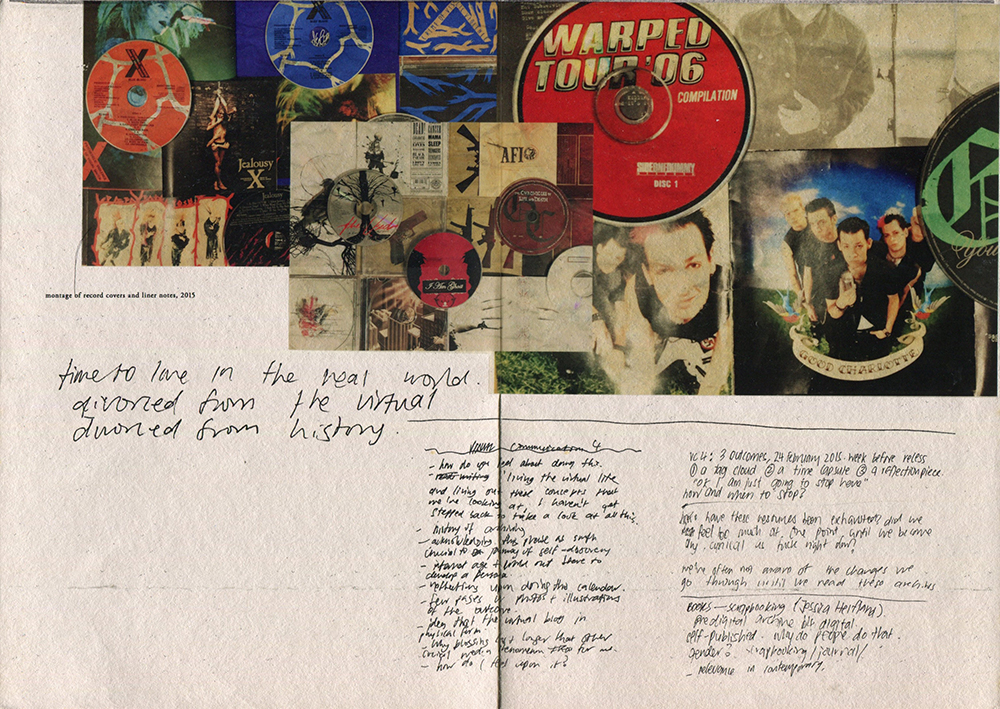 X
Jealousy
X
Jealousy
AFI
I Am Ghost
WARPED
TOUR '06
COMPILATION
SIDEONEDUMMY
DISC 1
GOOD CHARLOTTE
You
montage of record covers and liner notes, 2015
time to love in the real world.
divorced from the virtual
divorced from history.
Visual Communication 4
- how do you feel about doing this.
- living the virtual life
and living out these concepts that
we're looking at, I haven't yet
stepped back to take a look at all this.
- history of archiving
- acknowledging this phase as such
crucial to journey of self-discovery
- internet age + world out there to
develop a persona.
- reflecting upon doing this calendar.
- few pages of photos + illustrations
of the outcome.
- idea that the virtual blog in
physical form.
- why blogging last longer than other
social media for me.
- how do I feel upon it?
VC4: 3 outcomes, 24 february 2015. week before recess
① a tag cloud ② a time capsule ③ a reflection piece.
"ok I am just going to stop here"
how and when to stop?
have these resources been exhausted? did we
feel too much at one point, until we became
cynical as fuck right now?
we're often not aware of the changes we
go through until we read these archives
BOOKS — scrapbooking (Jessica Helfand).
predigital archive bit digital.
self-published. why do people do that.
gender? scrapbooking/journal/
- relevance in contemporary.